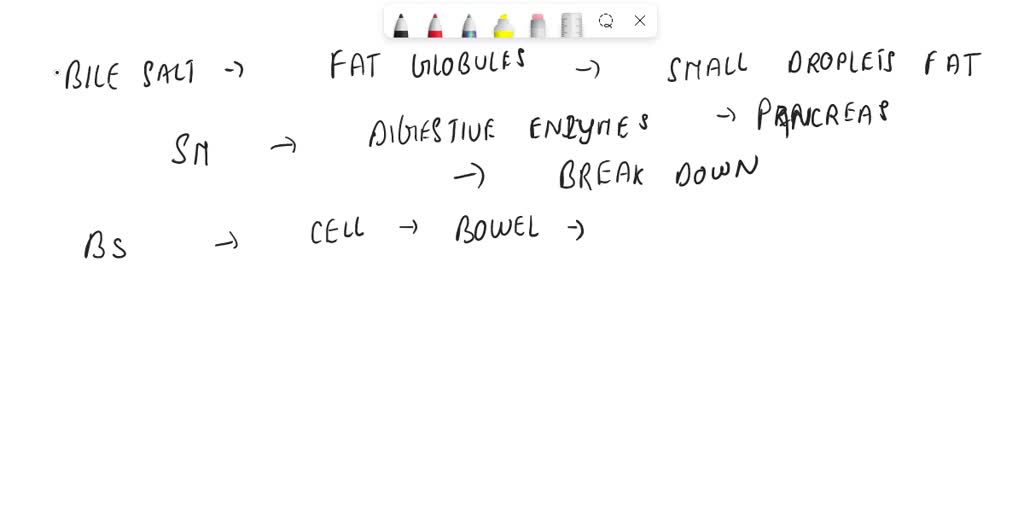 BILE SALT → FAT GLOBULES → SMALL DROPLETS FAT
SM → DIGESTIVE ENZYMES → PANCREAS
→ BREAK DOWN
BS → CELL → BOWEL →